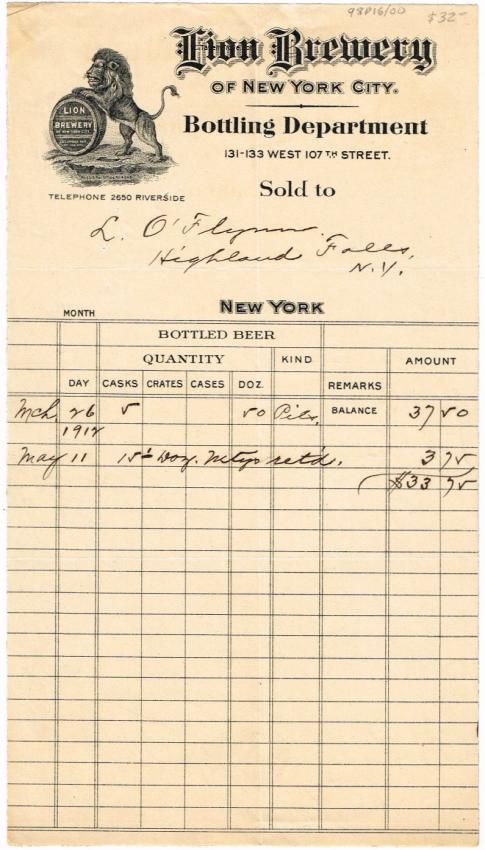 98P16/00 $32-
Lion Brewery
OF NEW YORK CITY.
Bottling Department
131-133 WEST 107TH STREET.
LION
BREWERY
OF NEW YORK CITY
TELEPHONE 2650 RIVERSIDE
Sold to
L. O'Flynn.
Highland Falls,
N.Y.
MONTH NEW YORK
BOTTLED BEER
QUANTITY KIND AMOUNT
DAY CASKS CRATES CASES DOZ. REMARKS
Mch 26 5 50 Pils. BALANCE 37 50
1912
May 11 15 Doz. Mtys ret'd. 3 75
$33 75